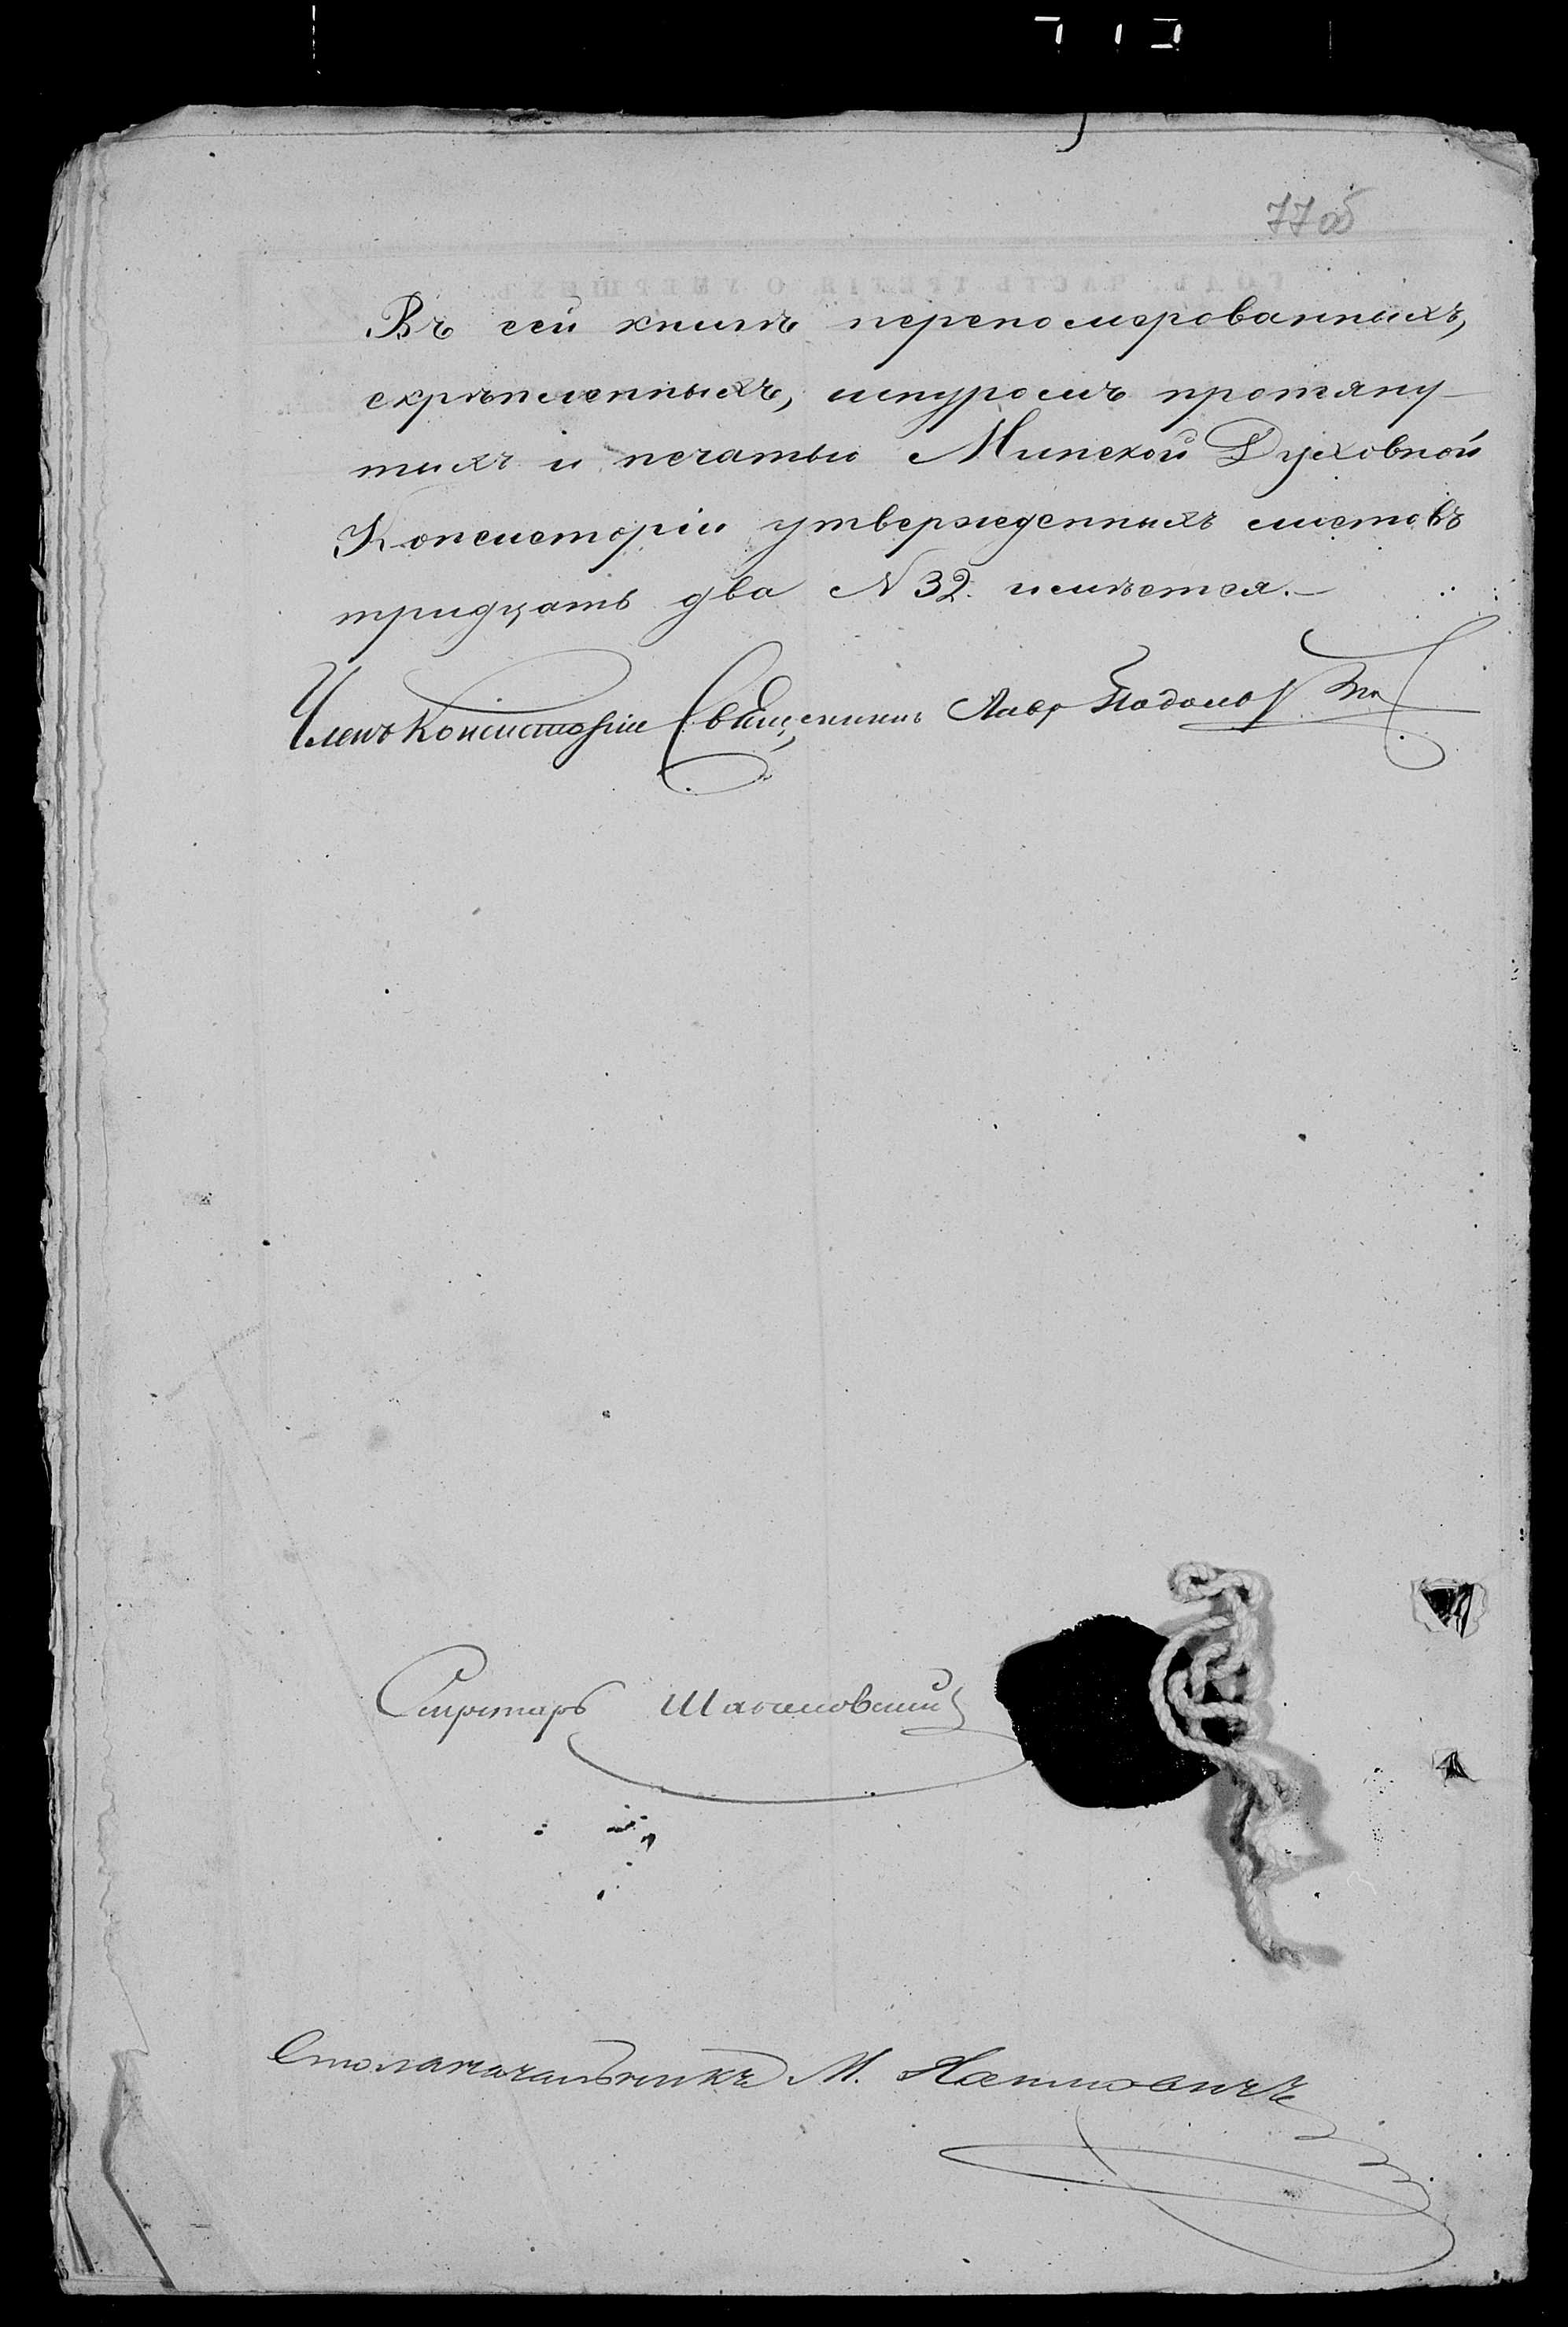 77 об
Въ сей книгѣ перепомерованныхъ,
скрѣпленныхъ, шнуромъ протяну-
тыхъ и печатью Минской Духовной
Консисторіи утвержденныхъ листовъ
тридцать два №32. имѣется.—
Членъ Консисторіи Священникъ
Секретарь
Столоначальникъ М.